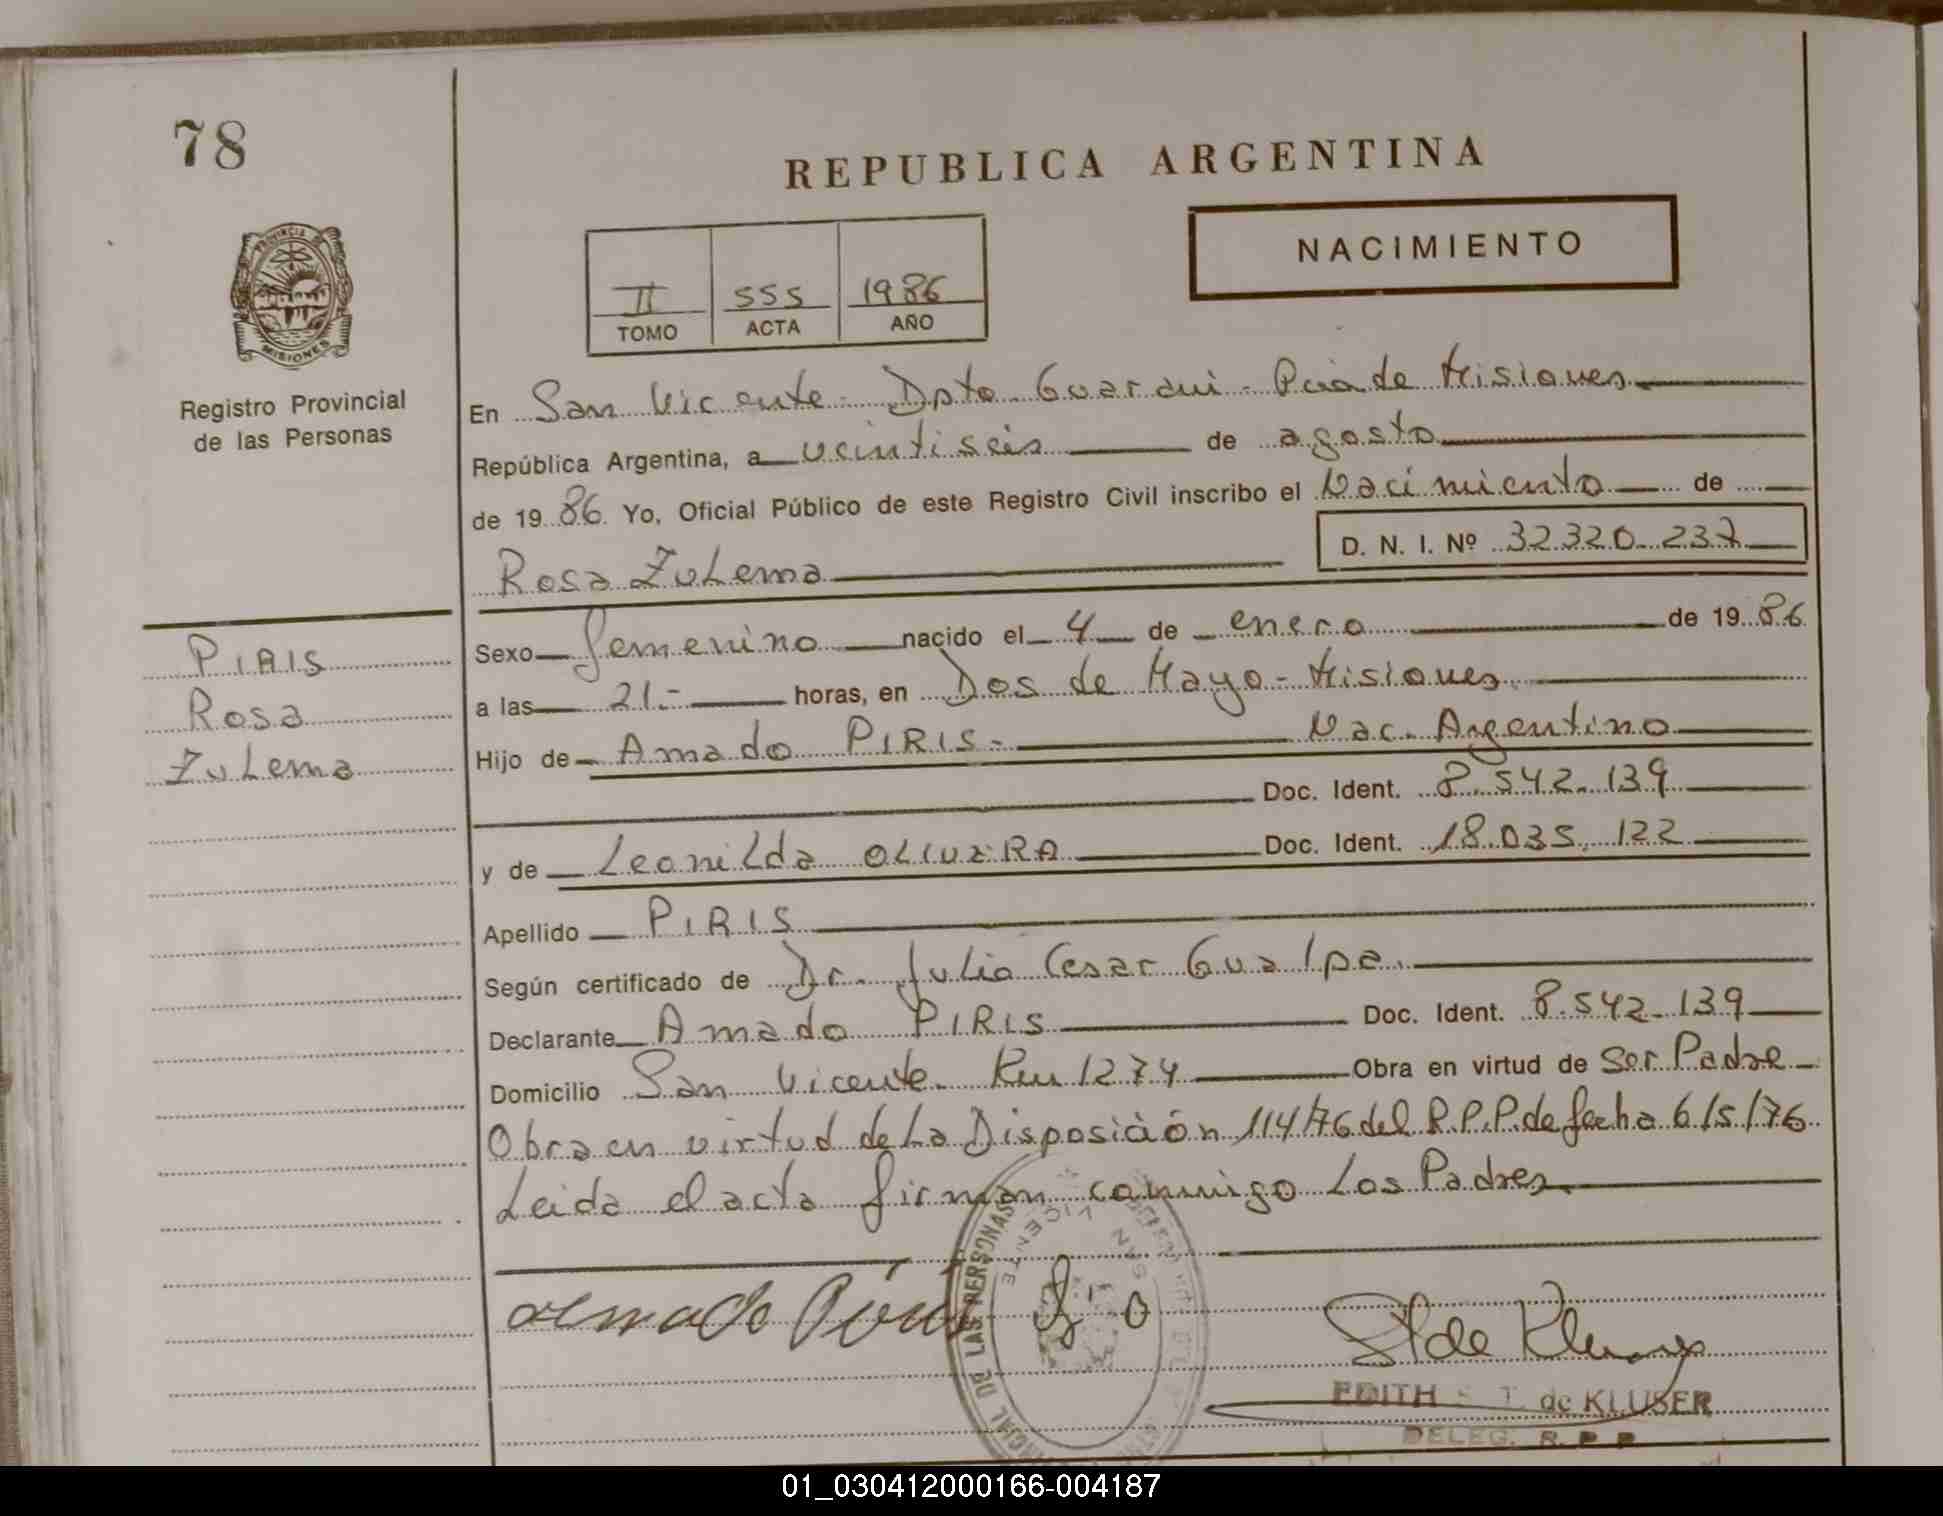 78
REPUBLICA ARGENTINA
NACIMIENTO
PROVINCIA DE
MISIONES
II 555 1986
TOMO ACTA AÑO
Registro Provincial
de las Personas
En San Vicente - Dpto. Guaraní - Pcia de Misiones
República Argentina, a veintiseis de agosto
de 1986 Yo, Oficial Público de este Registro Civil inscribo el Nacimiento de
Rosa Zulema D. N. I. Nº 32.320.237
PIRIS
Rosa
Zulema
Sexo Femenino nacido el 4 de enero de 1986
a las 21.- horas, en Dos de Mayo - Misiones.
Hijo de Amado PIRIS.- Nac. Argentino
Doc. Ident. 8.542.139
y de Leonilda OLIVERA Doc. Ident. 18.035.122
Apellido PIRIS
Según certificado de Dr. Julio Cesar Gualpa.
Declarante Amado PIRIS Doc. Ident. 8.542.139
Domicilio San Vicente Km 1274 Obra en virtud de Ser Padre
Obra en virtud de la Disposición 114/76 del R.P.P. de fecha 6/5/76
Leida el acta firman conmigo Los Padres.
Amado Piris
DE LAS PERSONAS
SAN VICENTE
EDITH T. de KLUSER
DELEG. R. P. P.
01_030412000166-004187